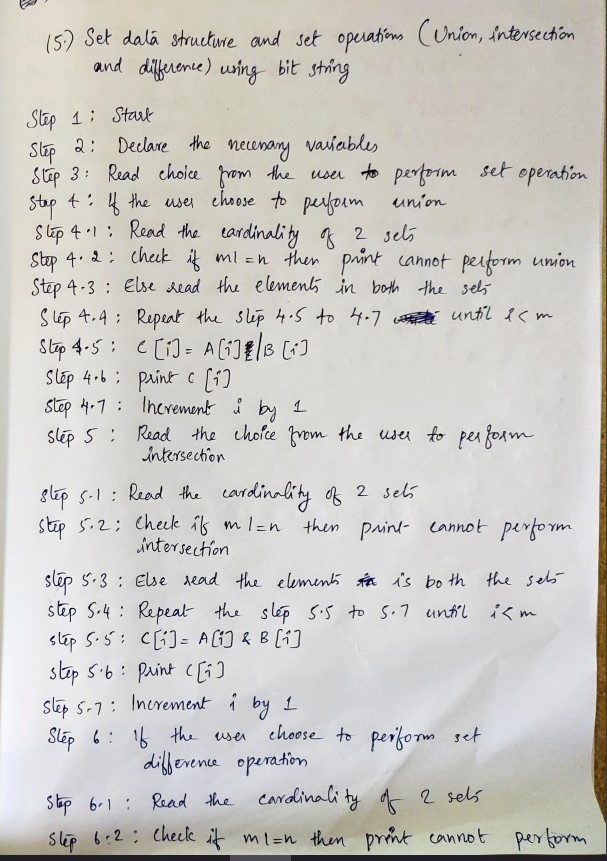 (5.) Set data structure and set operations (Union, intersection
and difference) using bit string
Step 1 : Start
Step 2 : Declare the necessary variables
Step 3 : Read choice from the user to perform set operation
Step 4 : If the user choose to perform union
Step 4.1 : Read the cardinality of 2 sets
Step 4.2 : Check if m!=n then print cannot perform union
Step 4.3 : Else read the elements in both the sets
Step 4.4 : Repeat the step 4.5 to 4.7 until i<m
Step 4.5 : C[i]= A[i]|B[i]
Step 4.6 : print c[i]
Step 4.7 : Increment i by 1
Step 5 : Read the choice from the user to perform
intersection
Step 5.1 : Read the cardinality of 2 sets
Step 5.2 : Check if m!=n then print cannot perform
intersection
Step 5.3 : Else read the elements is both the sets
Step 5.4 : Repeat the step 5.5 to 5.7 until i<m
Step 5.5 : C[i]= A[i] & B[i]
Step 5.6 : Print C[i]
Step 5.7 : Increment i by 1
Step 6 : If the user choose to perform set
difference operation
Step 6.1 : Read the cardinality of 2 sets
Step 6.2 : Check if m!=n then print cannot perform